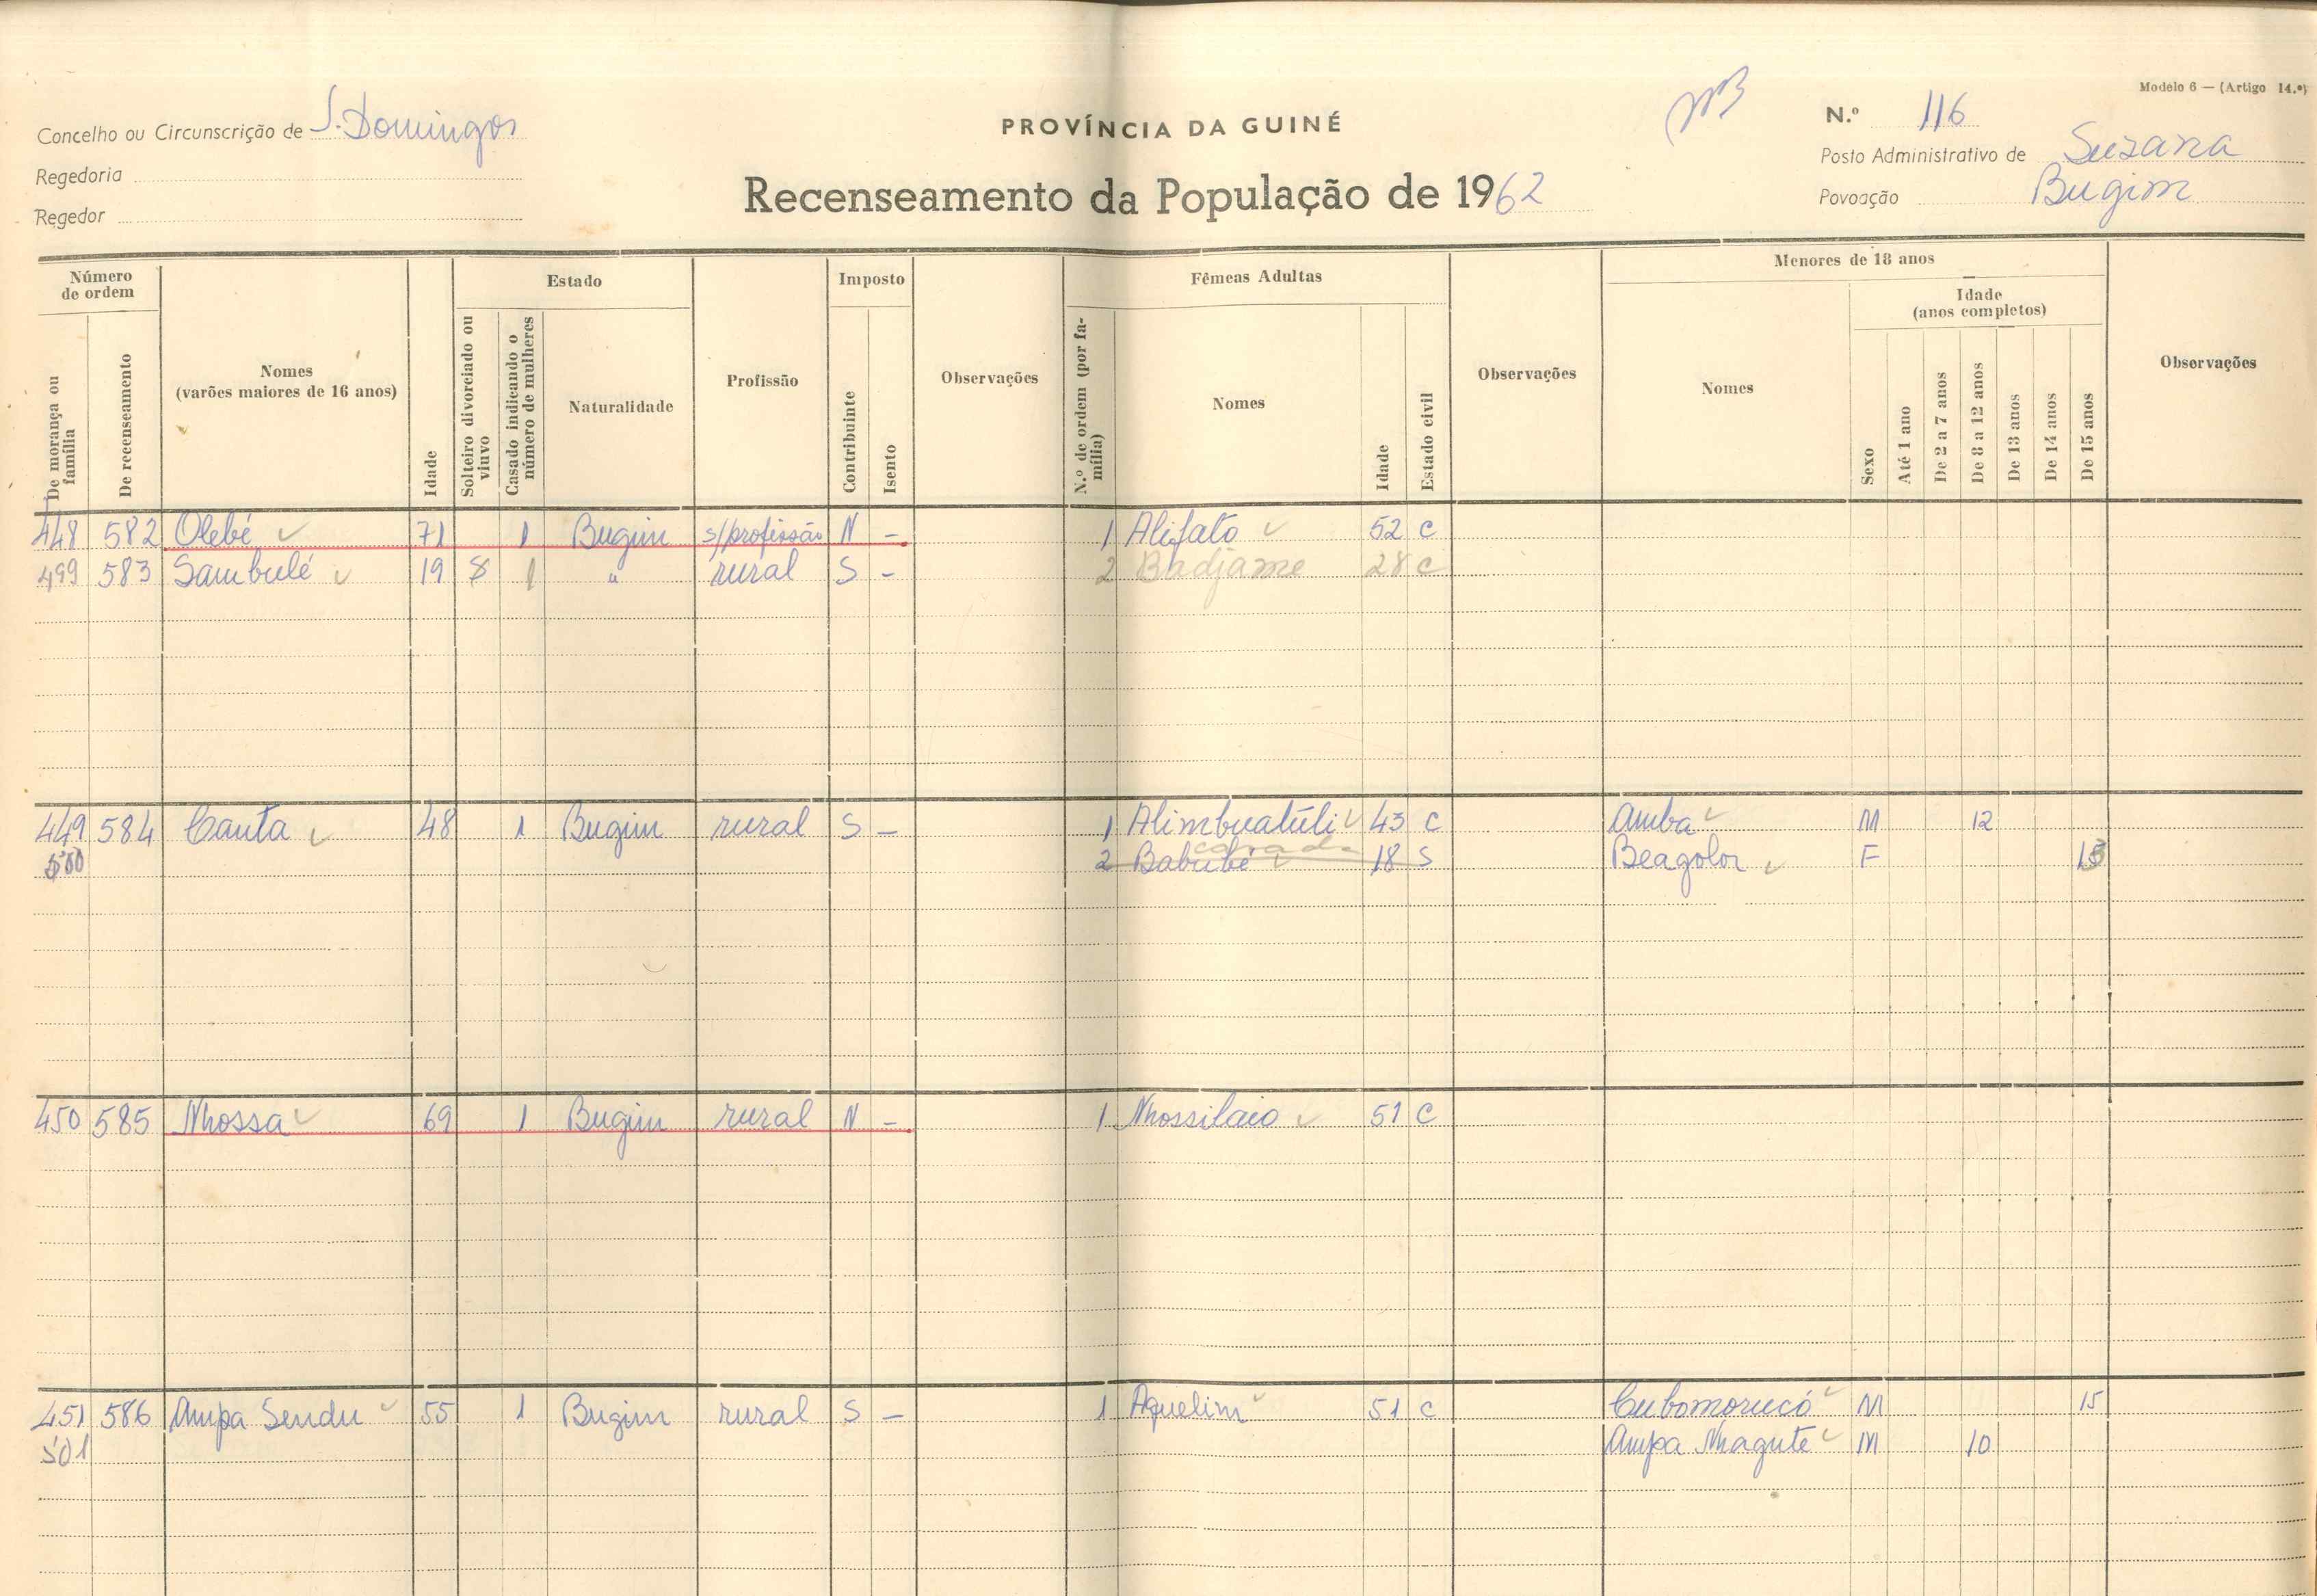 Modelo 6 — (Artigo 14.º)
Concelho ou Circunscrição de S. Domingos
PROVÍNCIA DA GUINÉ
N.º 116
Regedoria
Posto Administrativo de Suzana
Regedor
Recenseamento da População de 1962
Povoação Bugim
Número de ordem
De morança ou família
De recenseamento
Nomes
(varões maiores de 16 anos)
Idade
Estado
Solteiro divorciado ou viuvo
Casado indicando o número de mulheres
Naturalidade
Profissão
Imposto
Contribuinte
Isento
Observações
Fêmeas Adultas
N.º de ordem (por família)
Nomes
Idade
Estado civil
Observações
Menores de 18 anos
Nomes
Idade
(anos completos)
Sexo
Até 1 ano
De 2 a 7 anos
De 8 a 12 anos
De 13 anos
De 14 anos
De 15 anos
Observações
448 582 Olebé 71 1 Bugim s/profissão N - 1 Alifato 52 C
499 583 Sambulé 19 S 1 " rural S - 2 Badjame 28 C
449 584 Canta 48 1 Bugim rural S - 1 Alimbuatúli 43 C Amba M 12
casada
500 2 Babubé 18 S Beagolor F
450 585 Nhossa 69 1 Bugim rural N - 1 Nhossilaio 51 C
451 586 Ampa Sendu 55 1 Bugim rural S - 1 Aquelim 51 C Cubomorucó M 15
501 Ampa Nhaguté M 10